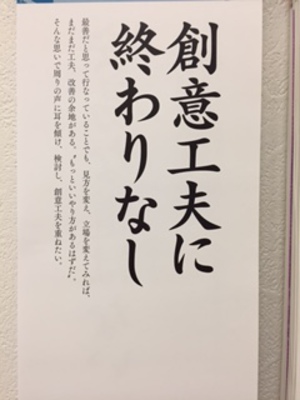 創意工夫に
終わりなし
最善だと思って行なっていることでも、見方を変え、立場を変えてみれば、
まだまだ工夫、改善の余地がある。〝もっといいやり方があるはずだ〟。
そんな思いで周りの声に耳を傾け、検討し、創意工夫を重ねたい。